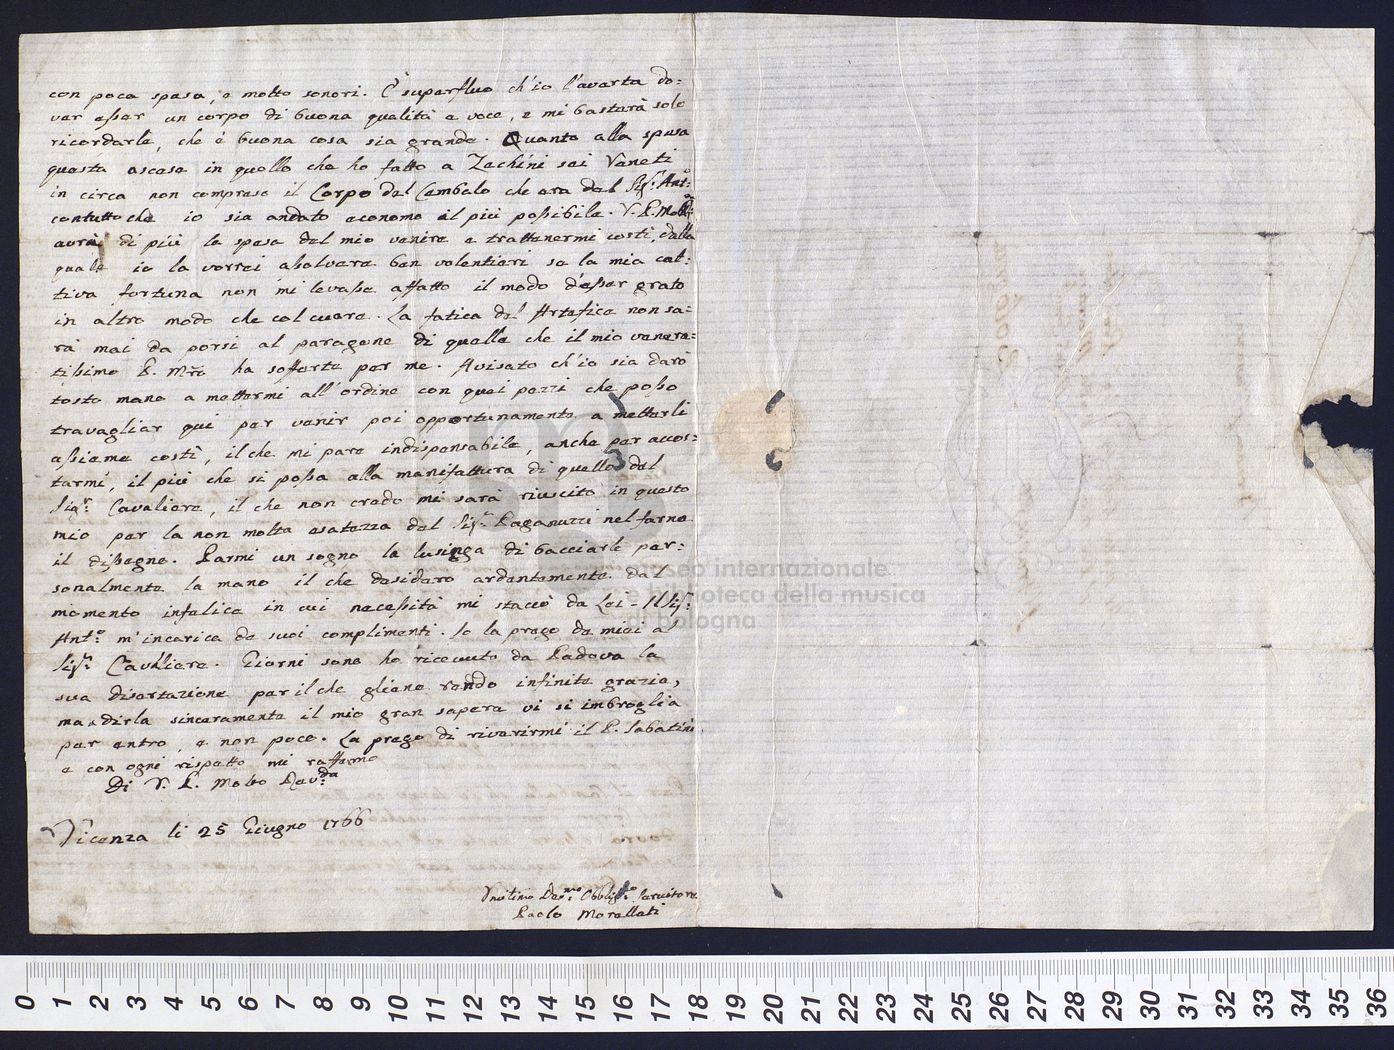 con poca spesa, e molto sonori. È superfluo ch'io l'averta do=
ver esser un corpo di buona qualità e voce, e mi basterà solo
ricordarle, che è buona cosa sia grande. Quanto alla spesa
questa ascese in quello che ho fatto a Zechini sei Veneti
in circa non compreso il Corpo del Cembalo che era del Sig.r Ant.o
contuttoche io sia andato economo il più possibile. V. P. Molto
avrà di più la spesa del mio venire e trattenermi costì, dalla
quale io la vorrei assolvere ben volentieri se la mia cat=
tiva fortuna non mi levasse affatto il modo d'esser grato
in altro modo che col cuore. La fatica del Artefice non sa=
rà mai da porsi al paragone di quella che il mio venera=
tissimo P. Mrõ ha sofferta per me. Avisato ch'io sia darò
tosto mano a mettermi all'ordine con quei pezzi che posso
travagliar qui per venir poi opportunamente a metterli
assieme costì, il che mi pare indispensabile, anche per accos=
tarmi, il più che si possa alla manifattura di quello del
Sig.r Cavaliere, il che non credo mi sarà riuscito in questo
mio per la non molta esatezza del Sig.r Paganuzzi nel farne
il dissegno. Parmi un sogno la lusinga di bacciarle per=
sonalmente la mano il che desidero ardentemente dal
momento infelice in cui necessità mi staccò da Lei - Il Sig.r
Ant.o m'incarica de suoi complimenti. Io la prego de miei al
Sig.r Cavaliere. Giorni sono ho ricevuto da Padova la
sua disertazione per il che gliene rendo infinite grazie,
ma a dirla sinceramente il mio gran sapere vi si imbroglia
per entro, e non poco. La prego di riverirmi il P. Sabatini
e con ogni rispetto mi raffermo
Di V. P. Molto Rev.da
Vicenza li 25 Giugno 1766
Umilimo Dev.mo Obblig.to Servitore
Paolo Morellati
museo internazionale
e biblioteca della musica
di bologna
0 1 2 3 4 5 6 7 8 9 10 11 12 13 14 15 16 17 18 19 20 21 22 23 24 25 26 27 28 29 30 31 32 33 34 35 36